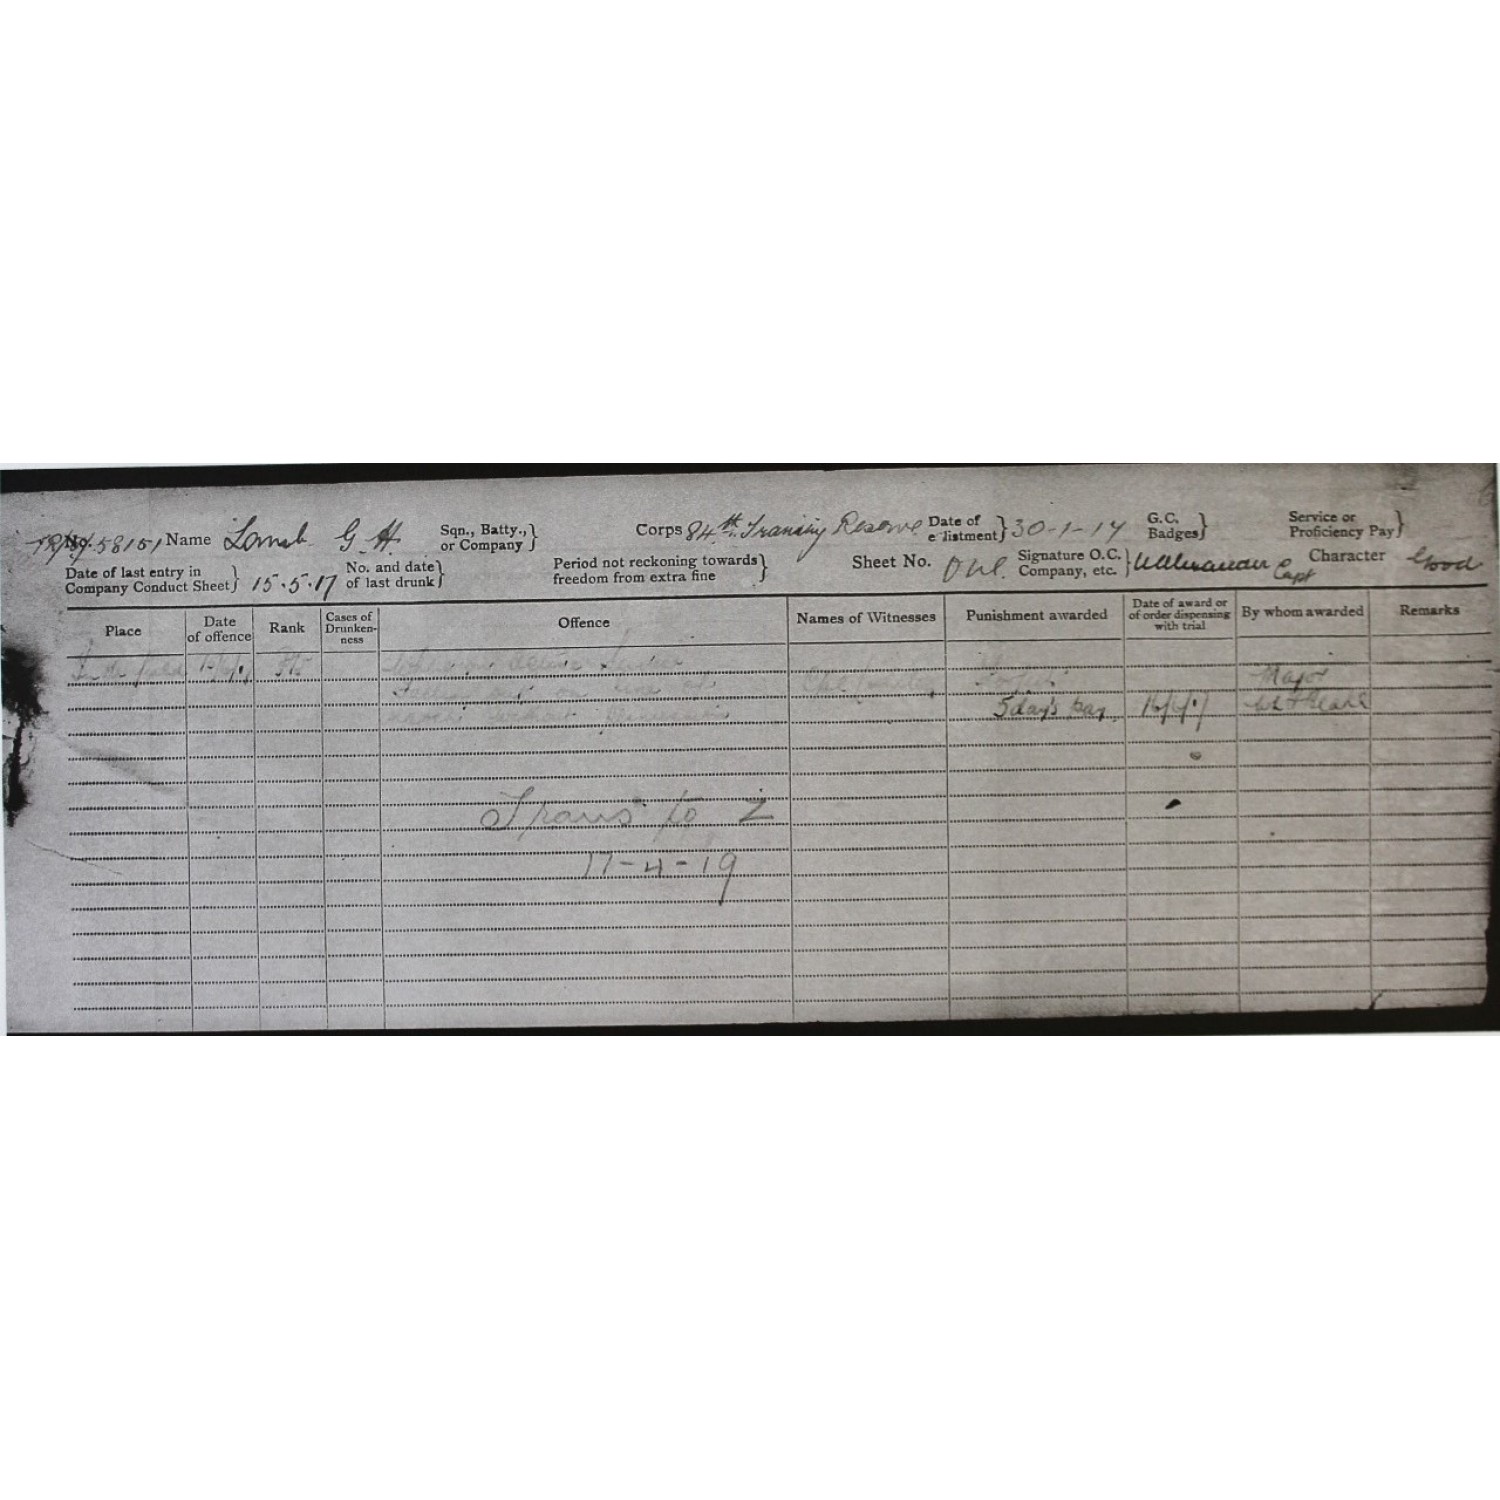 No. 58151 Name Lamb G. H. Sqn., Batty., or Company } Corps 84th Training Reserve Date of enlistment } 30-1-17 G.C. Badges } Service or Proficiency Pay }
Date of last entry in Company Conduct Sheet } 15.5.17 No. and date of last drunk } Period not reckoning towards freedom from extra fine } Sheet No. One. Signature O.C. Company, etc. } Capt Character Good
Place Date of offence Rank Cases of Drunken-ness Offence Names of Witnesses Punishment awarded Date of award or of order dispensing with trial By whom awarded Remarks
In the field Pte When on Active Service
Falling out on line of Forfeits Major
march without permission 5 day's pay 16/6/17
Trans to Z
17-4-19